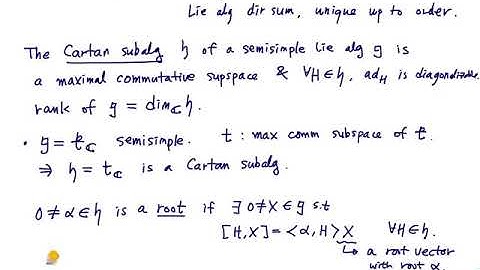 Lie alg dir sum, unique up to order.
The Cartan subalg 𝔥 of a semisimple Lie alg 𝔤 is
a maximal commutative supspace & ∀H∈𝔥, ad_H is diagonalizable.
rank of 𝔤 = dim_ℂ 𝔥.
• 𝔤 = 𝔨_ℂ semisimple. 𝔱 : max comm subspace of 𝔨.
⇒ 𝔥 = 𝔱_ℂ is a Cartan subalg.
0≠α∈𝔥 is a root if ∃ 0≠X∈𝔤 s.t
[H,X]=<α,H>X ∀H∈𝔥.
↳ a root vector
with root α.